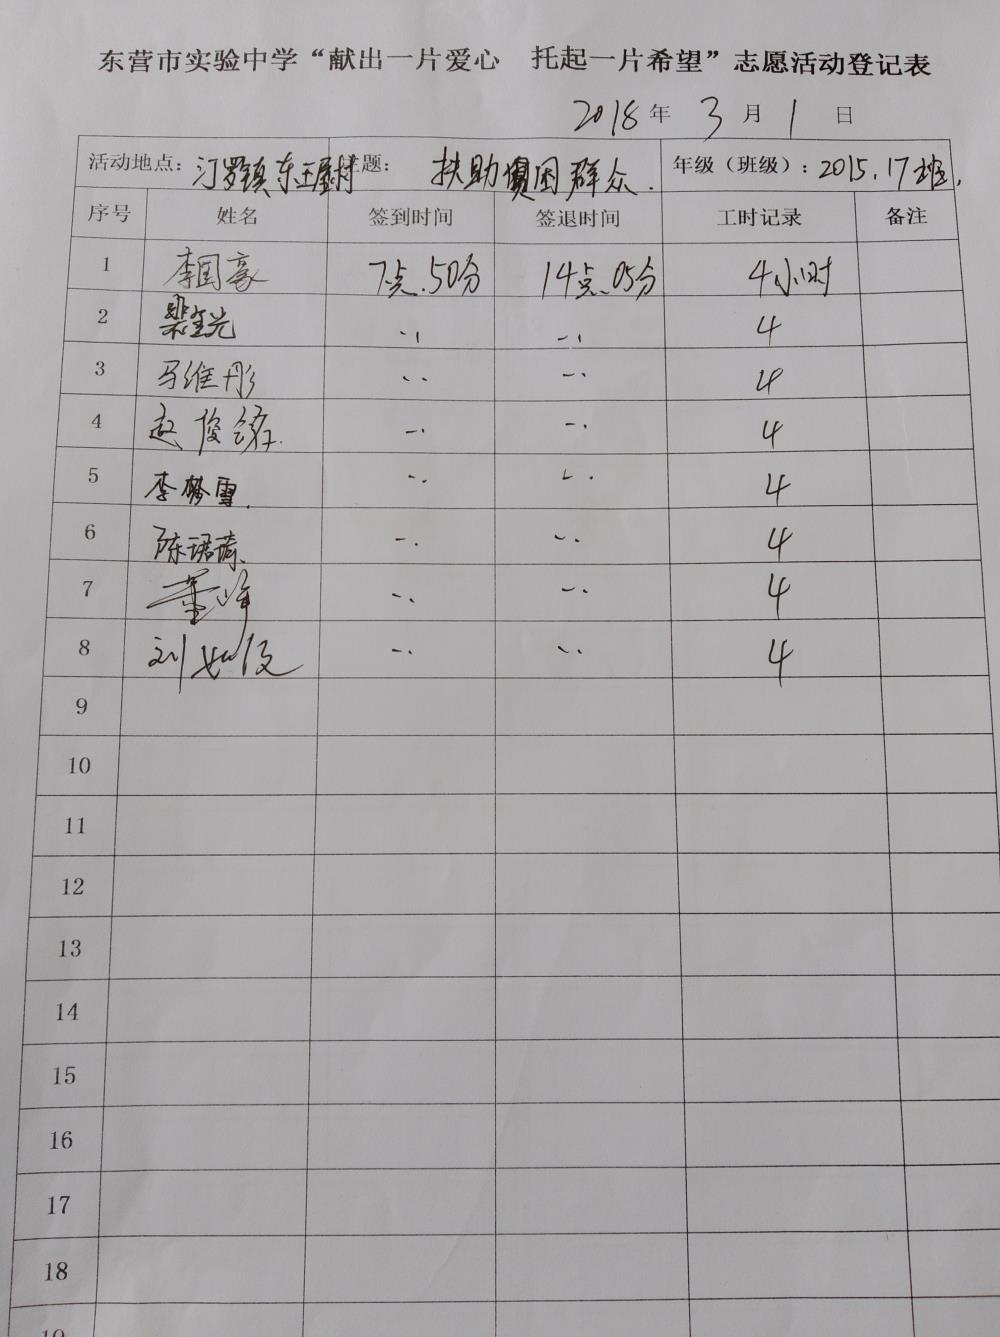 东营市实验中学“献出一片爱心 托起一片希望”志愿活动登记表
2018 年 3 月 1 日
活动地点：汀罗镇东王 村 主题： 扶助贫困群众. 年级（班级）：2015.17班.
序号 姓名 签到时间 签退时间 工时记录 备注
1 李国豪 7点.50分 14点.05分 4小时
2 4
3 马维彤 4
4 赵俊 4
5 李梦雪. 4
6 陈珺琦. 4
7 董峰 4
8 刘 4
9
10
11
12
13
14
15
16
17
18
19